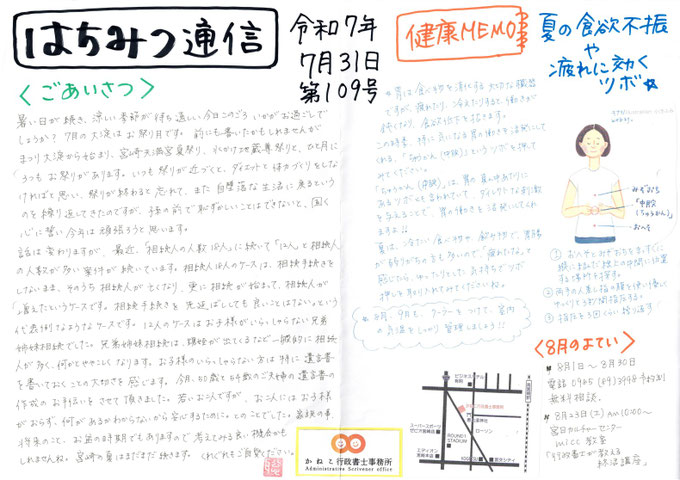 はちみつ通信
令和7年
7月31日
第109号
<ごあいさつ>
暑い日が続き、涼しい季節が待ち遠しい今日このごろいかがお過ごしで
しょうか?7月の大淀はお祭り月です。前にも書いたかもしれませんが
まつり大淀から始まり、宮崎天満宮夏祭り、
お祭りがあります。いつも祭りが近づくと、ダイエットと体力づくりをしな
ければと思い、祭りが終わると忘れて、また自堕落な生活に戻るという
のを繰り返してきたのですが、孫の前で恥ずかしいことはできないと、固く
心に誓い今年は頑張ろうと思います。
話は変わりますが、最近、「相続人の人数16人」に続いて「12人」と相続人
の人数が多い案件が続いています。相続人16人のケースは、相続手続きを
しないまま、そのうち相続人が亡くなり、更に相続が始まって、相続人が
増えたというケースです。相続手続きを先延ばしにしても良いことはないという
代表例なようなケースです。12人のケースはお子様がいらっしゃらない兄弟
姉妹相続でした。兄弟姉妹相続は、甥姪が出てくるなど一般的に相続
人が多く、何かとややこしくなります。お子様のいらっしゃらない方は特に遺言書
を書いておくことの大切さを感じます。今月、40歳と44歳のご夫婦の遺言書の
作成のお手伝いをさせて頂きました。若いお二人ですが、お二人にはお子様
がおらず、何があるかわからないから安心するために。とのことでした。
将来のこと、お盆の時期でもありますので考えてみる良い機会かも
しれませんね。宮崎の夏はまだまだ続きます。くれぐれもご自愛ください。
かねこ行政書士事務所
Administrative Scrivener office
健康MEMO
夏の食欲不振
や
疲れに効く
ツボ☆
胃は食べ物を消化する大切な臓器
ですが、疲れたり、冷えたりすると、働きが
悪くなり、食欲が低下を招きます。
この時季、特に気になる胃の働きを活発にして
くれる、「ちゅうかん(中脘)」というツボを押し
てみてください。
「ちゅうかん(中脘)」は、胃の真ん中あたりに
あるツボとも言われていて、ダイレクトな刺激
を与えることで、胃の働きを活発にしてくれ
ます♪♪
夏は、冷たい食べ物や、飲み物で、胃腸
が弱りがちの方も多いので、「疲れたな」と
感じたら、ゆったりとした気持ちでツボ
押しを取り入れてみてくださいね。
8月、9月も、クーラーをつけて、室内
の気温をしっかり管理しましょう!!
みずおち
「中脘
(ちゅうかん)」
おへそ
① おへそとみずおちをまっすぐに
② 両手の人差し指の腹を使い
③
<8月のよてい>
8月1日~8月30日
電話0985(89)3988予約制
無料相談。
8月23日(土)Am10:00~
宮日カルチャーセンター
mics教室
「行政書士が教える
終活講座」
ビジネスホテル
かねこ行政書士事務所
ローソン
スーパースポーツ
ゼビオ宮崎本店
ROUND1
STADIUM
エディオン
宮崎本店
宮交シティ